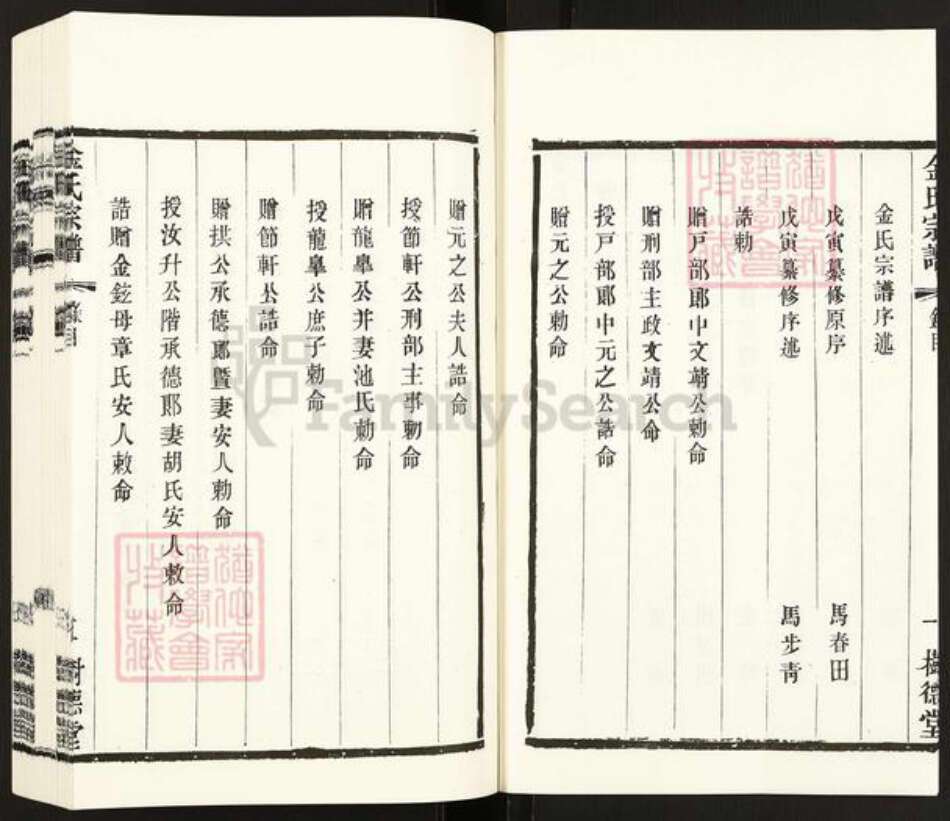 金氏宗譜
錄目
一
樹德堂
金氏宗譜序述
戊寅纂修原序 馬春田
戊寅纂修序述 馬步靑
誥勅
贈戸部郞中文靖公勅命
贈刑部主政文靖公命
授戸部郞中元之公誥命
贈元之公勅命
贈元之公夫人誥命
授節軒公刑部主事勅命
贈龍臯公幷妻池氏勅命
授龍臯公庶子勅命
贈節軒公誥命
贈拱公承德郞暨妻安人勅命
授汝升公階承德郞妻胡氏安人敕命
誥贈金鉉母章氏安人敕命
金氏宗譜
樹德堂
FamilySearch